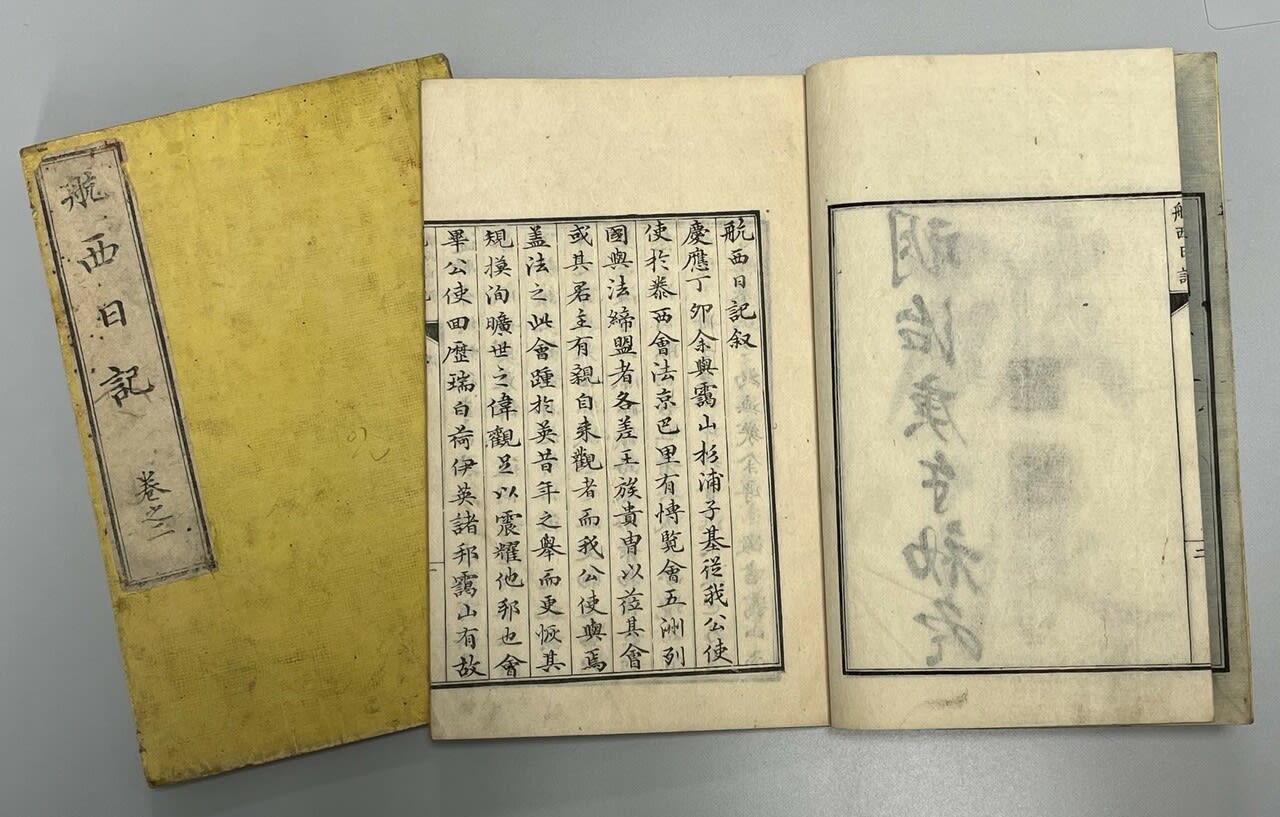 航西日記
卷之二
航西日記
航西日記叙
慶應丁夘余與靄山杉浦子基從我公使
使於泰西會法京巴里有愽覧會五洲列
國與法締盟者各差王族貴冑以莅其會
或其君主有親自来觀者而我公使與焉
盖法之此會踵於英昔年之舉而更恢其
規摸洵曠世之偉觀足以震耀他邦也會
畢公使回歷瑞白荷伊英諸邦靄山有故
二